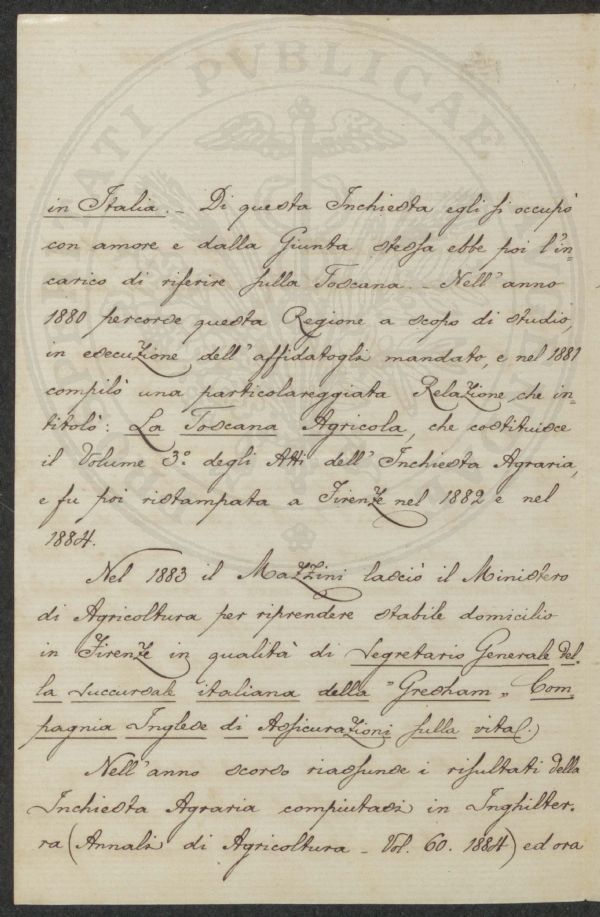 in Italia. - Di questa Inchiesta egli si occupò
con amore e dalla Giunta stessa ebbe poi l'in=
carico di riferire sulla Toscana. - Nell'anno
1880 percorse questa Regione a scopo di studio,
in esecuzione dell'affidatogli mandato, e nel 1881
compilò una particolareggiata Relazione, che in=
titolò: La Toscana Agricola, che costituisce
il Volume 3.º degli Atti dell'Inchiesta Agraria,
e fu poi ristampata a Firenze nel 1882 e nel
1884.
Nel 1883 il Mazzini lasciò il Ministero
di Agricoltura per riprendere stabile domicilio
in Firenze in qualità di Segretario Generale del
la Succursale italiana della "Gresham" Com
pagnia Inglese di Assicurazioni sulla vita.)
Nell'anno scorso riassunse i risultati della
Inchiesta Agraria compiutasi in Inghilter.
ra (Annali di Agricoltura - Vol. 60. 1884) ed ora
PVBLICAE